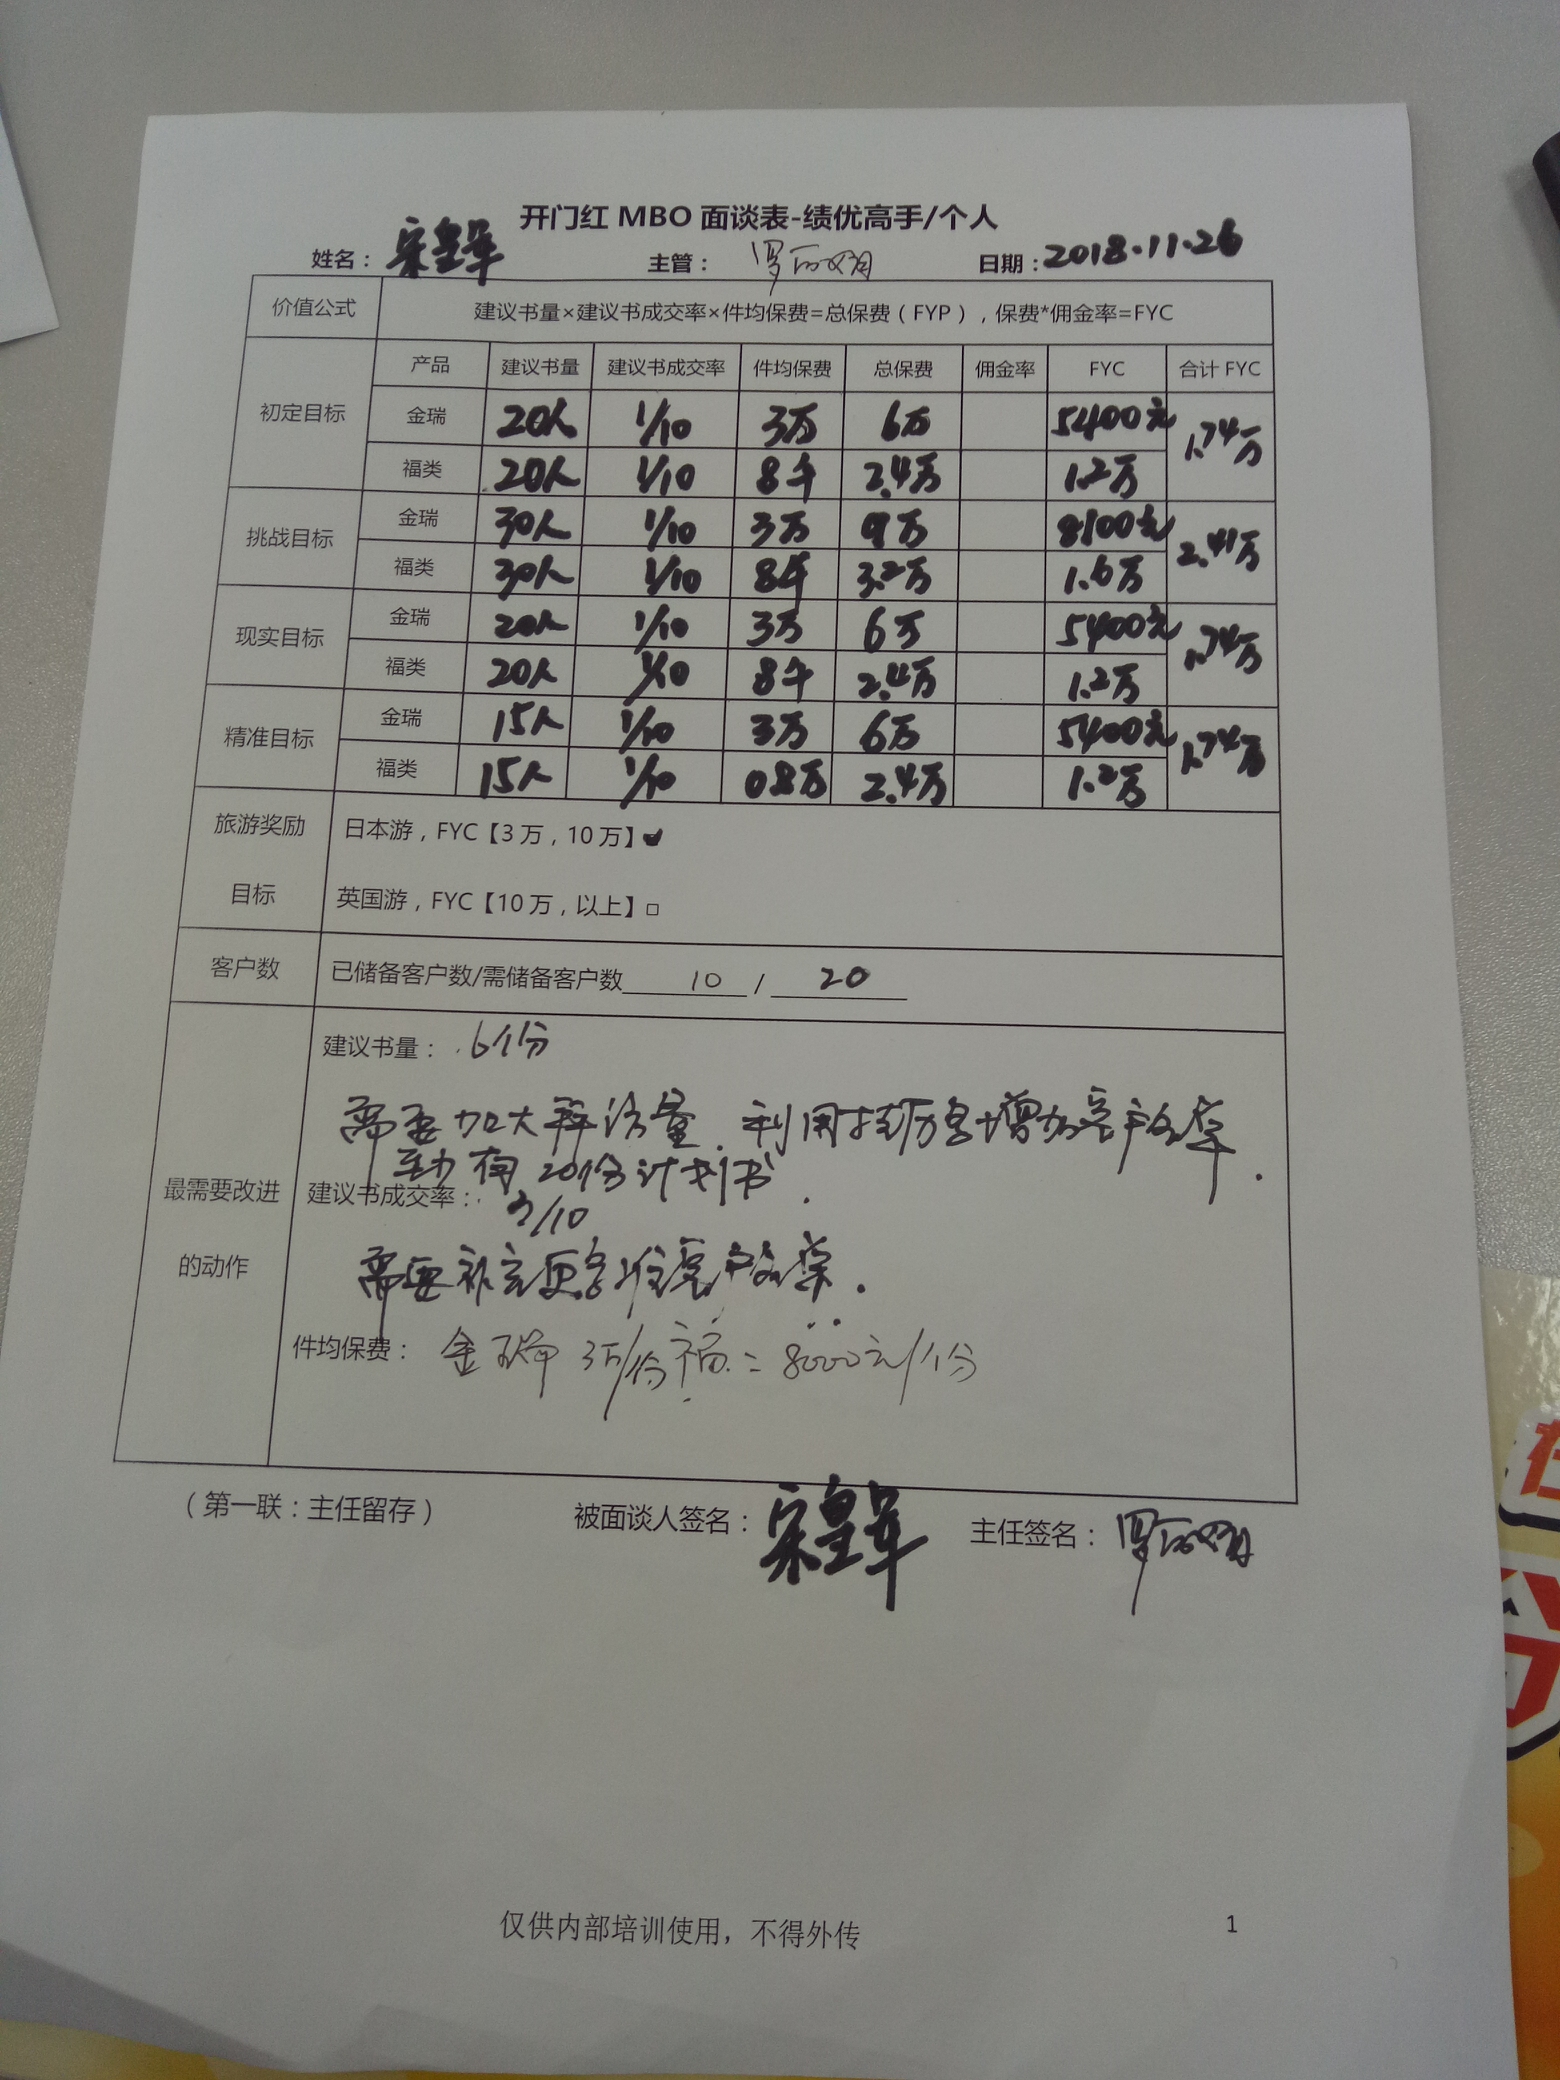 开门红 MBO 面谈表-绩优高手/个人
姓名： 宋皇军 主管： 罗丽娟 日期：2018.11.26
价值公式 建议书量×建议书成交率×件均保费=总保费（FYP），保费*佣金率=FYC
产品 建议书量 建议书成交率 件均保费 总保费 佣金率 FYC 合计 FYC
初定目标 金瑞 20人 1/10 3万 6万 5400元 1.74万
福类 20人 1/10 8千 2.4万 1.2万
挑战目标 金瑞 30人 1/10 3万 9万 8100元 2.41万
福类 30人 1/10 8千 3.2万 1.6万
现实目标 金瑞 20人 1/10 3万 6万 5400元 1.74万
福类 20人 1/10 8千 2.4万 1.2万
精准目标 金瑞 15人 1/10 3万 6万 5400元 1.74万
福类 15人 1/10 0.8万 2.4万 1.2万
旅游奖励
目标
日本游，FYC【3 万，10 万】
英国游，FYC【10 万，以上】□
客户数 已储备客户数/需储备客户数 10 / 20
最需要改进
的动作
建议书量： 6个份
需要加大拜访量，利用增加客户名单
20份计划书
建议书成交率： 3/10
需要补充更多准客户名单.
件均保费： 金瑞 3万/份 福 = 8000元/个份
（第一联：主任留存） 被面谈人签名： 宋皇军 主任签名： 罗丽娟
仅供内部培训使用，不得外传
1